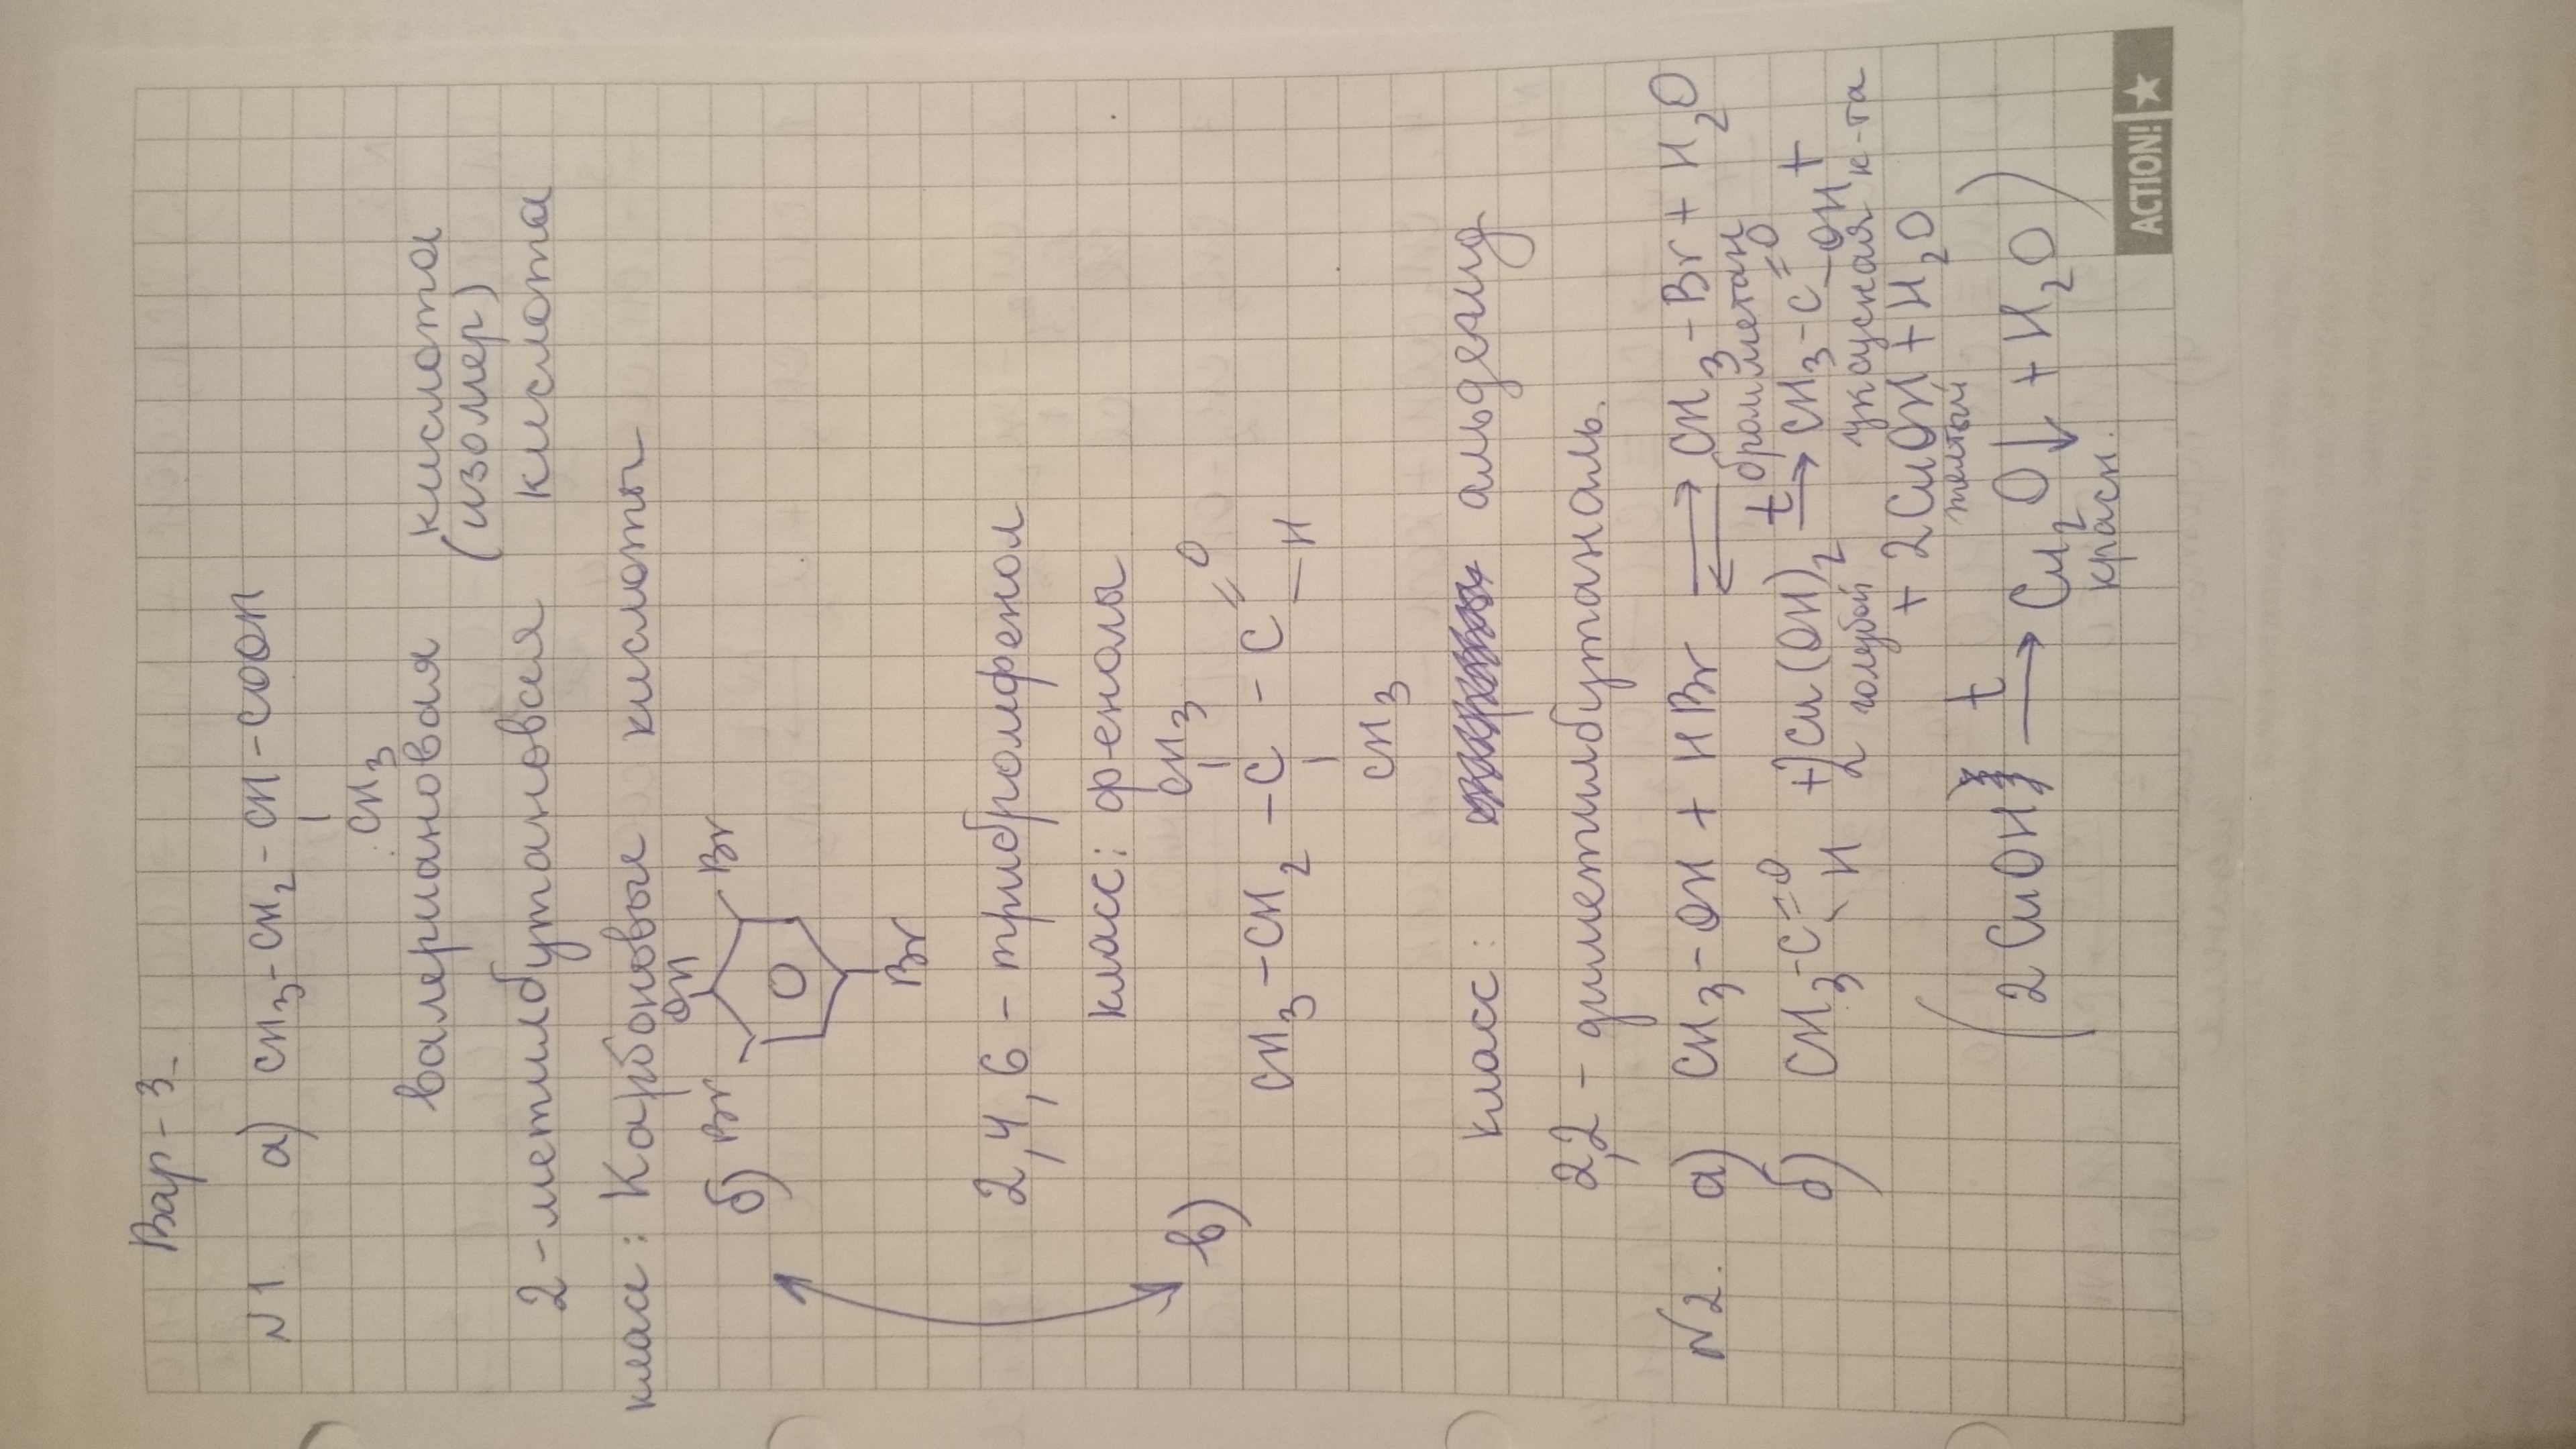 Вар-3
N1 а) CH3-CH2-CH-COOH
CH3
валериановая кислота
(изомер)
2-метилбутановая кислота
класс: Карбоновые кислоты
OH
б) Br Br
Br
2,4,6-трибромфенол
класс: фенолы
CH3 O
в) CH3-CH2-C-C
H
CH3
класс: альдегид
2,2-диметилбутаналь.
N2. а) CH3-OH + HBr ⇄ CH3-Br + H2O
бромметан
б) CH3-C=O H + 2Cu(OH)2 t→ CH3-C=O -OH +
голубой уксусная к-та
+ 2CuOH + H2O
желтый
(2CuOH t→ Cu2O↓ + H2O)
красн.
ACTION!